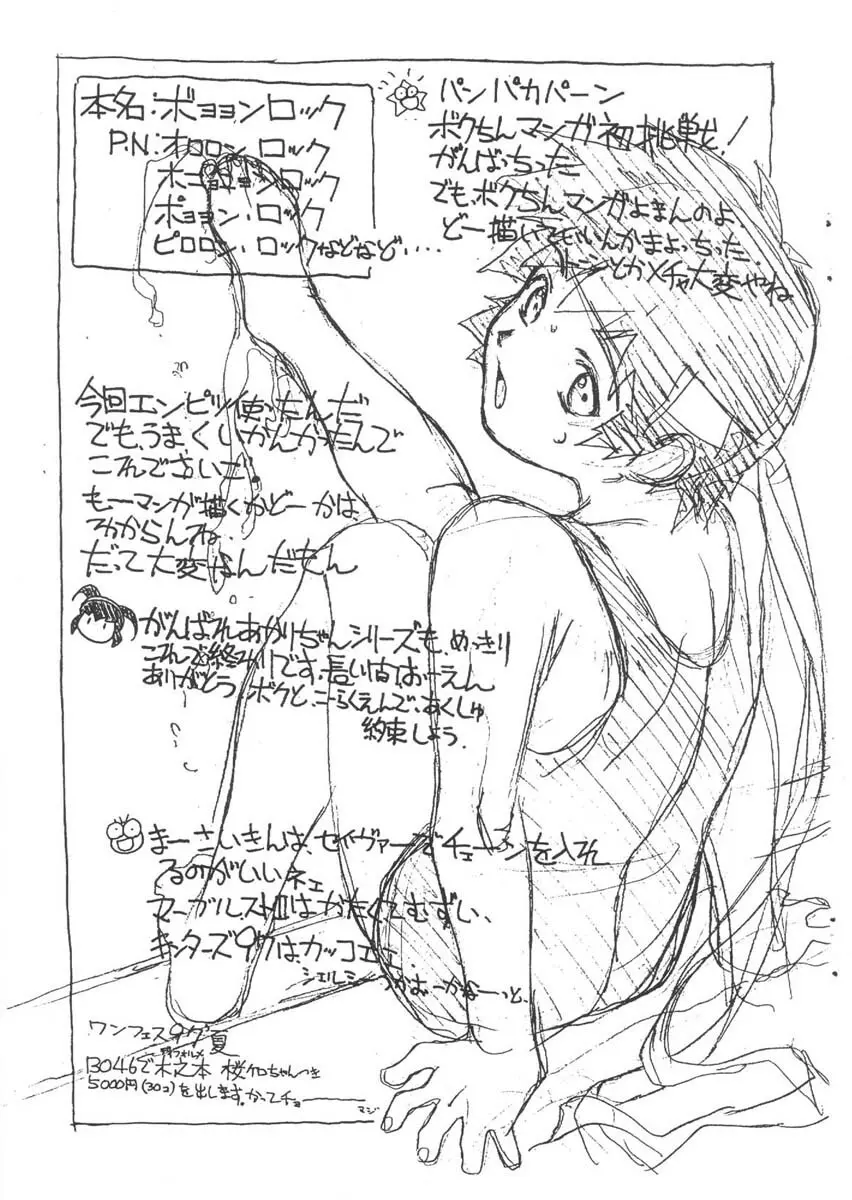 本名:ボョョンロック
P.N:オロロン ロック
ボニョョン ロック
ポョョン・ロック
ピロロン・ロックなどなど・・・・
パンパカパーン
ボクちんマンガ初挑戦!
がんばっちった
でも、ボクちんマンガよまんのよ
どー描いていいんかまよっちった。
とかメチャ大変やね
今回エンピツ使ったんだ
でも、うまくいかんかったんで
これでさいご。
もーマンガ描くかどーかは、
わからんね。
だって大変なんだもん
がんばれあかりちゃんシリーズも、めっきり
これで終わりです。長い間おーえん
ありがとう。ボクと、こーらくえんで、あくしゅ
約束しよう。
まーさいきんは、セイヴァーでチェーンを入れ
るのがいいネェ
マーヴルスはかたくてむずい、
キングターズ97は、カッコエー
シェルミーつかおーかなーっと、
ワンフェス97夏
B046で木之本 桜ケロちゃんつき
5000円(30コ)を出します。かってチョ――
マジ